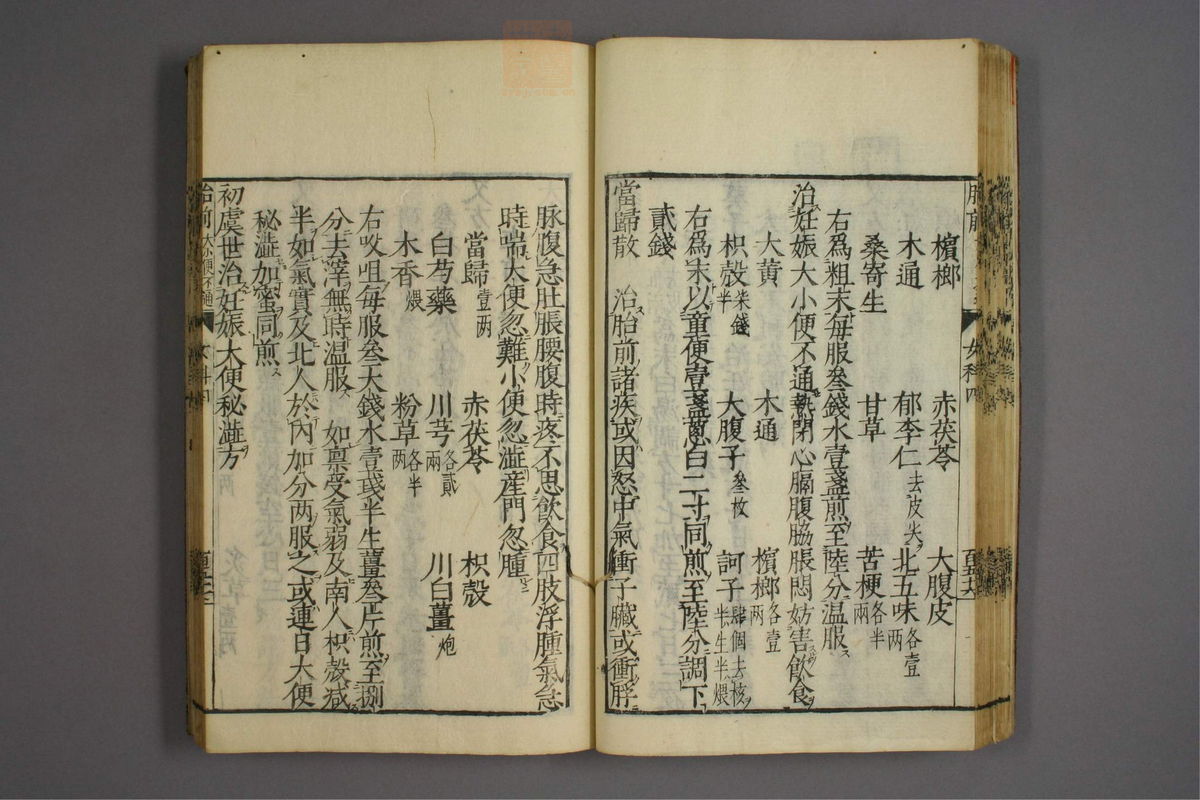 檳榔 赤茯苓 大腹皮
木通 郁李仁去皮尖 北五味各壹兩
桑寄生 甘草 苦梗各半兩
右爲粗末每服叄錢水壹盞煎至陸分溫服
治妊娠大小便不通熱閉心膈腹脇脹悶妨害飲食
大黄 木通 檳榔各壹兩
枳殼柒錢半 大腹子叄枚 訶子肆個去核半生半煨
右爲末以童便壹盞葱白二寸同煎至陸分調下
貳錢
當歸散 治胎前諸疾或因怒中氣衝子臟或衝脬
脉腹急肚脹腰腹時疼不思飲食四肢浮腫氣急
時喘大便忽難小便忽澁産門忽腫
當歸壹两 赤茯苓 枳殼
白芍藥 川芎各貳兩 川白薑炮
木香煨 粉草各半两
右㕮咀每服叄大錢水壹琖半生薑叄片煎至捌
分去滓無時温服 如禀受氣弱及南人枳殼减
半如氣實及北人於內加分两服之或連日大便
秘澁加蜜同煎
初虞世治妊娠大便秘澁方
胎前大小便不通 女科四